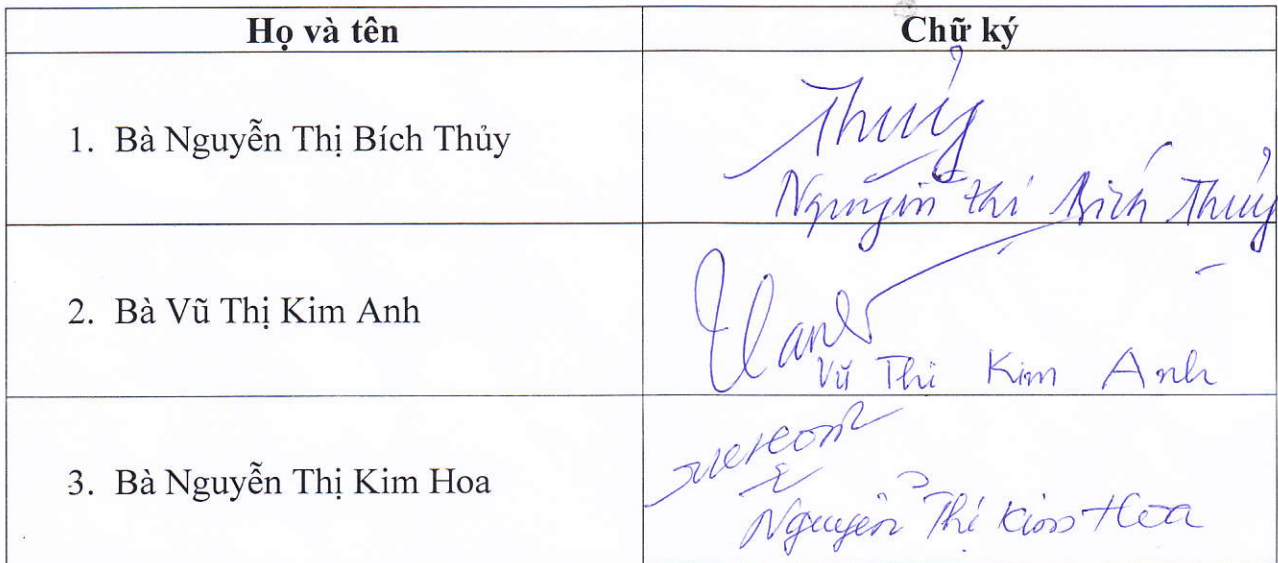 Họ và tên
Chữ ký
1. Bà Nguyễn Thị Bích Thủy
Thủy
Nguyễn Thị Bích Thủy
2. Bà Vũ Thị Kim Anh
Vũ Thị Kim Anh
3. Bà Nguyễn Thị Kim Hoa
Nguyễn Thị Kim Hoa